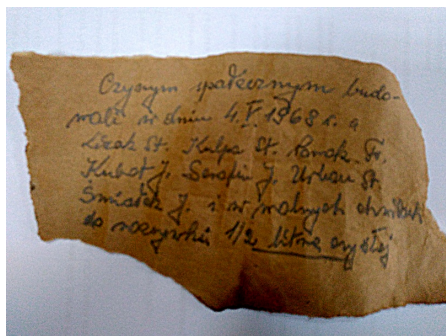 Czynem społecznym budo-
wali w dniu 4.V.1968 r. a
Lizak St. Kulpa St. Pawak Fr.
Kubat J. Serafin J. Urban St.
Świątek J. i w wolnych chwilach
do rozrywki 1/2 litra czystej